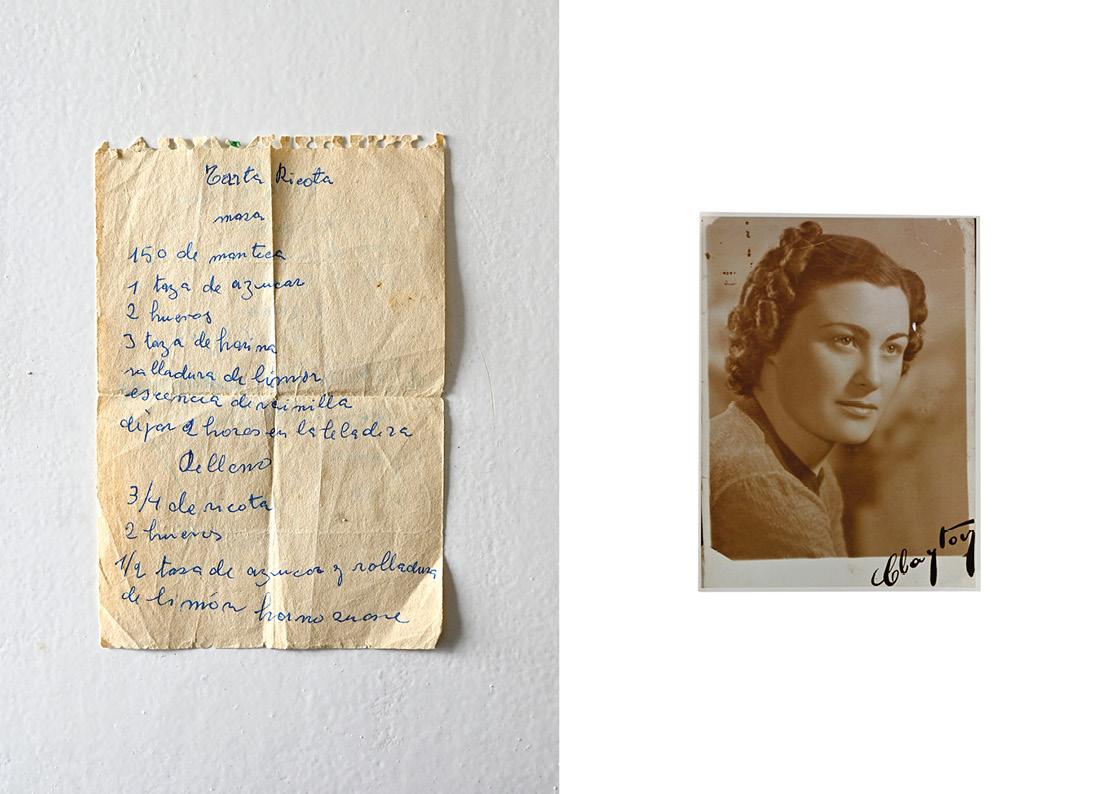 Tarta Ricota
masa
150 de manteca
1 taza de azucar
2 huevos
3 taza de harina
ralladura de limon
escencia de vainilla
dijar 2 horas en la heladera
Relleno
3/4 de ricota
2 huevos
1/2 tasa de azucar y ralladura
de limón horno suave
Clayton